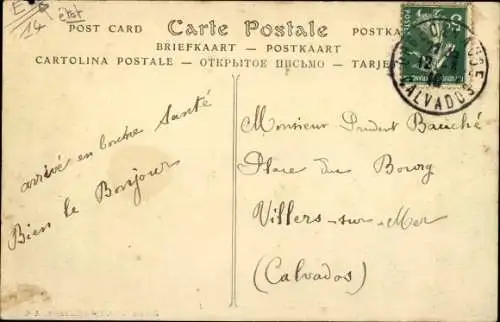 E
14
état
POST CARD Carte Postale POSTKA
BRIEFKAART — POSTKAART
CARTOLINA POSTALE — ОТКРЫТОЕ ПИСЬМО — TARJE
CALVADOS
arrivé en bonne Santé
Bien le Bonjour
Monsieur Prudent Bauché
Place du Bourg
Villers-sur-Mer
(Calvados)